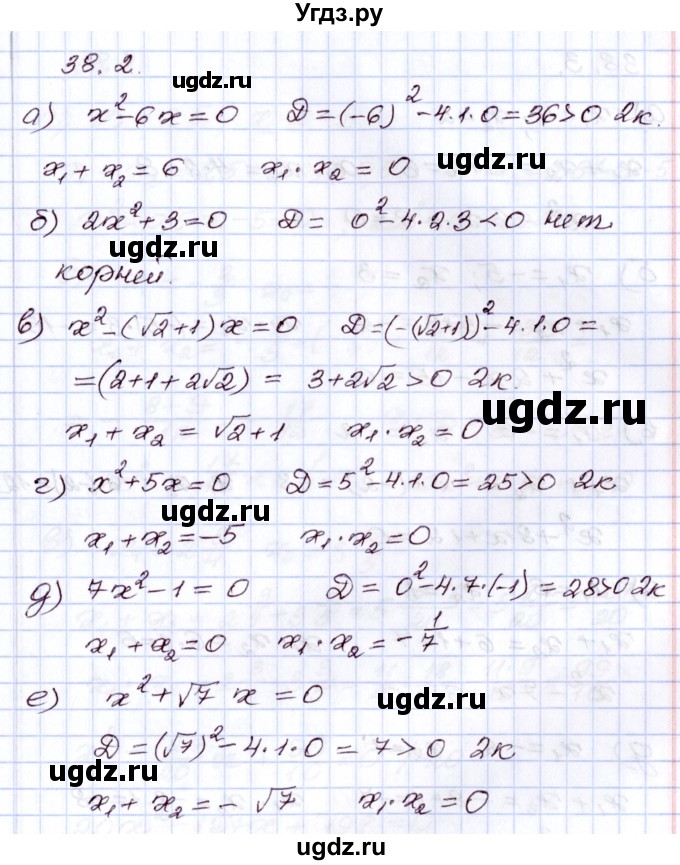 Угдз.ру
38.2.
ugdz.ru
а) x² - 6x = 0   D = (-6)² - 4·1·0 = 36 > 0 2к.
x₁ + x₂ = 6   x₁·x₂ = 0
ugdz.ru
б) 2x² + 3 = 0   D = 0² - 4·2·3 < 0 нет
ugdz.ru
корней.
в) x² - (√2+1)x = 0   D = (-(√2+1))² - 4·1·0 =
= (2+1+2√2) = 3+2√2 > 0 2к.
ugdz.ru
x₁ + x₂ = √2+1   x₁·x₂ = 0
г) x² + 5x = 0   D = 5² - 4·1·0 = 25 > 0 2к
ugdz.ru
x₁ + x₂ = -5   x₁·x₂ = 0
ugdz.ru
д) 7x² - 1 = 0   D = 0² - 4·7·(-1) = 28 > 0 2к
x₁ + x₂ = 0   x₁·x₂ = -1/7
е) x² + √7 x = 0
ugdz.ru
D = (√7)² - 4·1·0 = 7 > 0 2к
ugdz.ru
x₁ + x₂ = -√7   x₁·x₂ = 0
ugdz.ru